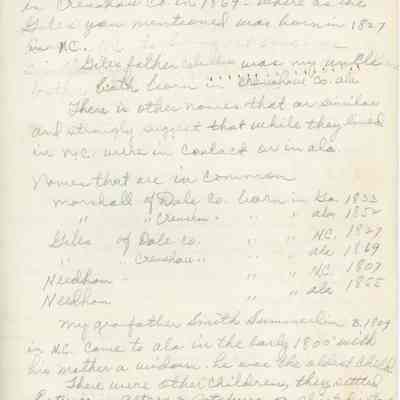 in Crenshaw Co. in 1869 - where as the
Giles you mentioned was born in 1827
in N.C.
Giles father was my uncle
both born in Crenshaw Co. ala
There is other names that are similar
and strongly suggest that while they lived
in N.C. were in contact or in ala.
Names that are in common
Marshall of Dale Co. born in Ga. 1833
" " Crensh. " " " ala 1852
Giles of Dale Co. " " N.C. 1827
" " Crenshaw " " " ala 1869
Needham - " " N.C. 1807
Needham " " ala 1855
My grandfather Smith Summerlin B. 1809
in N.C. came to ala in the early 1800' with
his mother a widow. he was the oldest child
There were other children, they settled